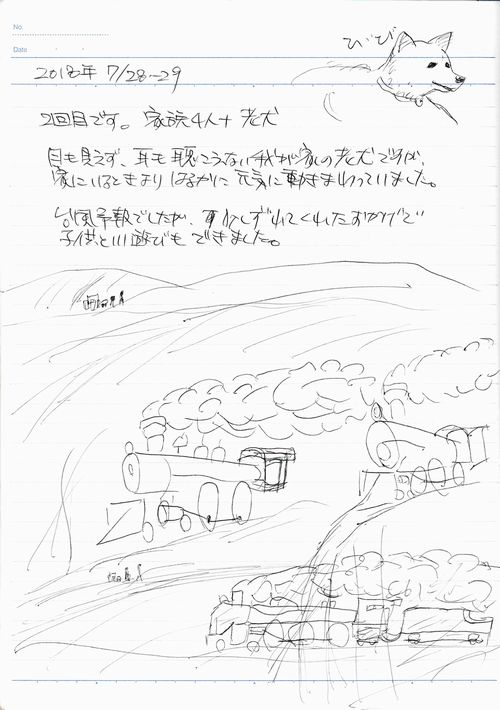 No.
Date
びび
2018年 7/28~29
2回目です。 家族4人+老犬
目も見えず、耳も聴こうない我が家の老犬ですが、
家にいるときよりはるかに元気に動きまわっていました。
台風予報でしたが、すこしずれてくれたおかげで
子供と川遊びもできました。